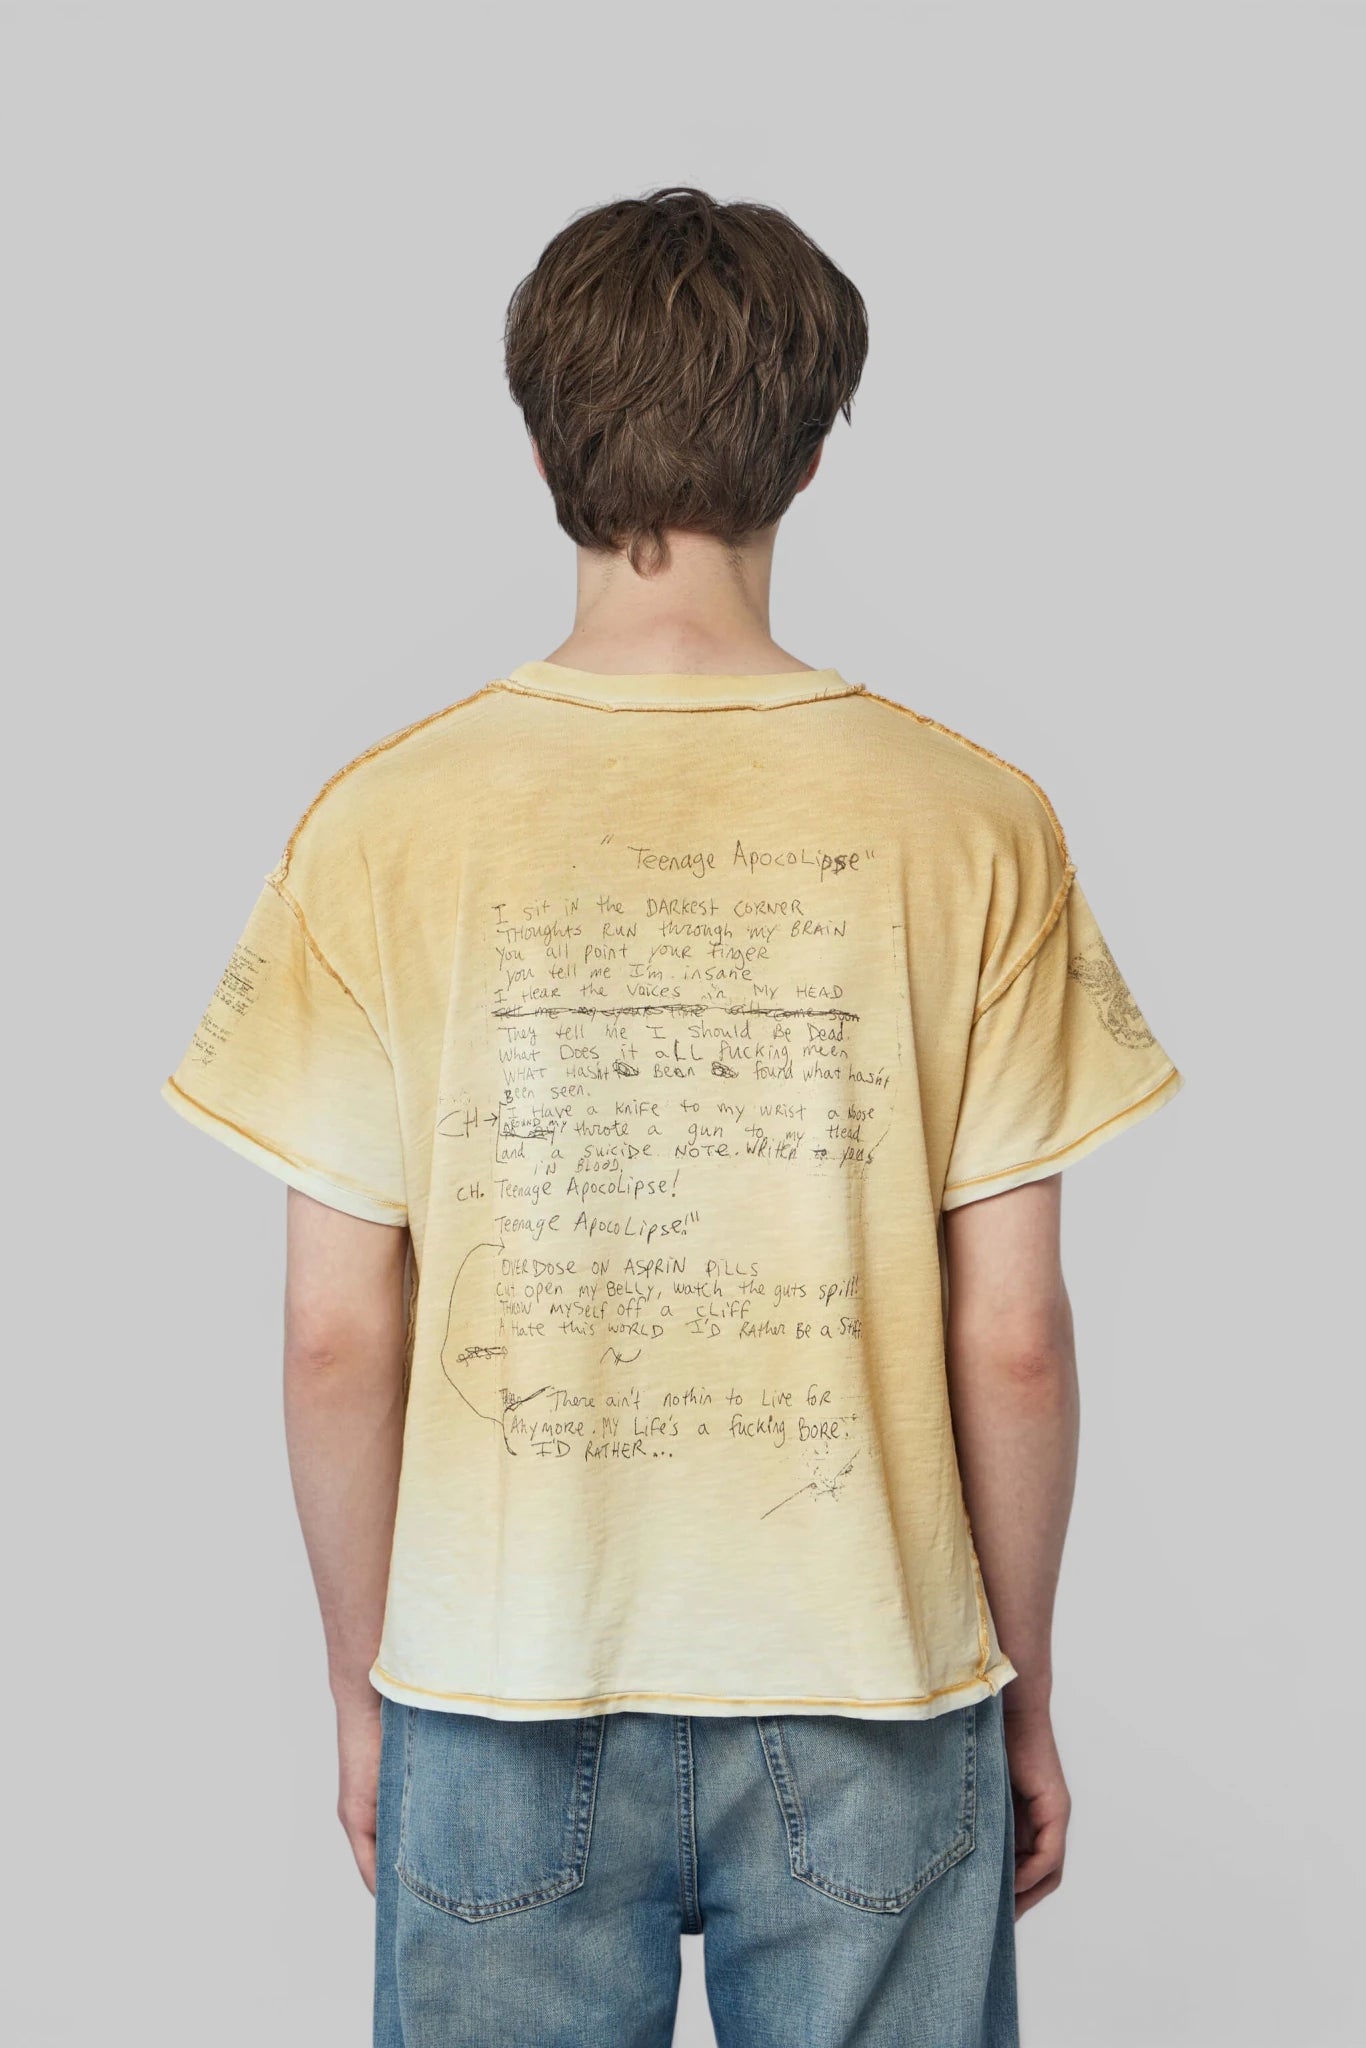 "Teenage Apocolipse"
I sit in the DARKEST CORNER
Thoughts RUN through my BRAIN
You all point your finger
you tell me I'm insane
I Hear the Voices in MY HEAD
They tell me I should Be Dead.
What Does it aLL fucking meen
WHAT Hasn't Bean found what hasn't
Been seen.
CH → I Have a Knife to my wrist a Noose
AROUND MY throte a gun to my Head
and a suicide NOTE. Written to you
IN BLOOD.
CH. Teenage ApocoLipse!
Teenage ApocoLipse!!!
OVERDose ON ASPRIN PiLLS
Cut open my BeLLy, watch the guts spill!
Throw mySelf off a cLiFF
A Hate this WORLD I'D RATher Be a
There ain't nothin to Live foR
Anymore. My Life's a fucking BORE.
I'D RATHER...